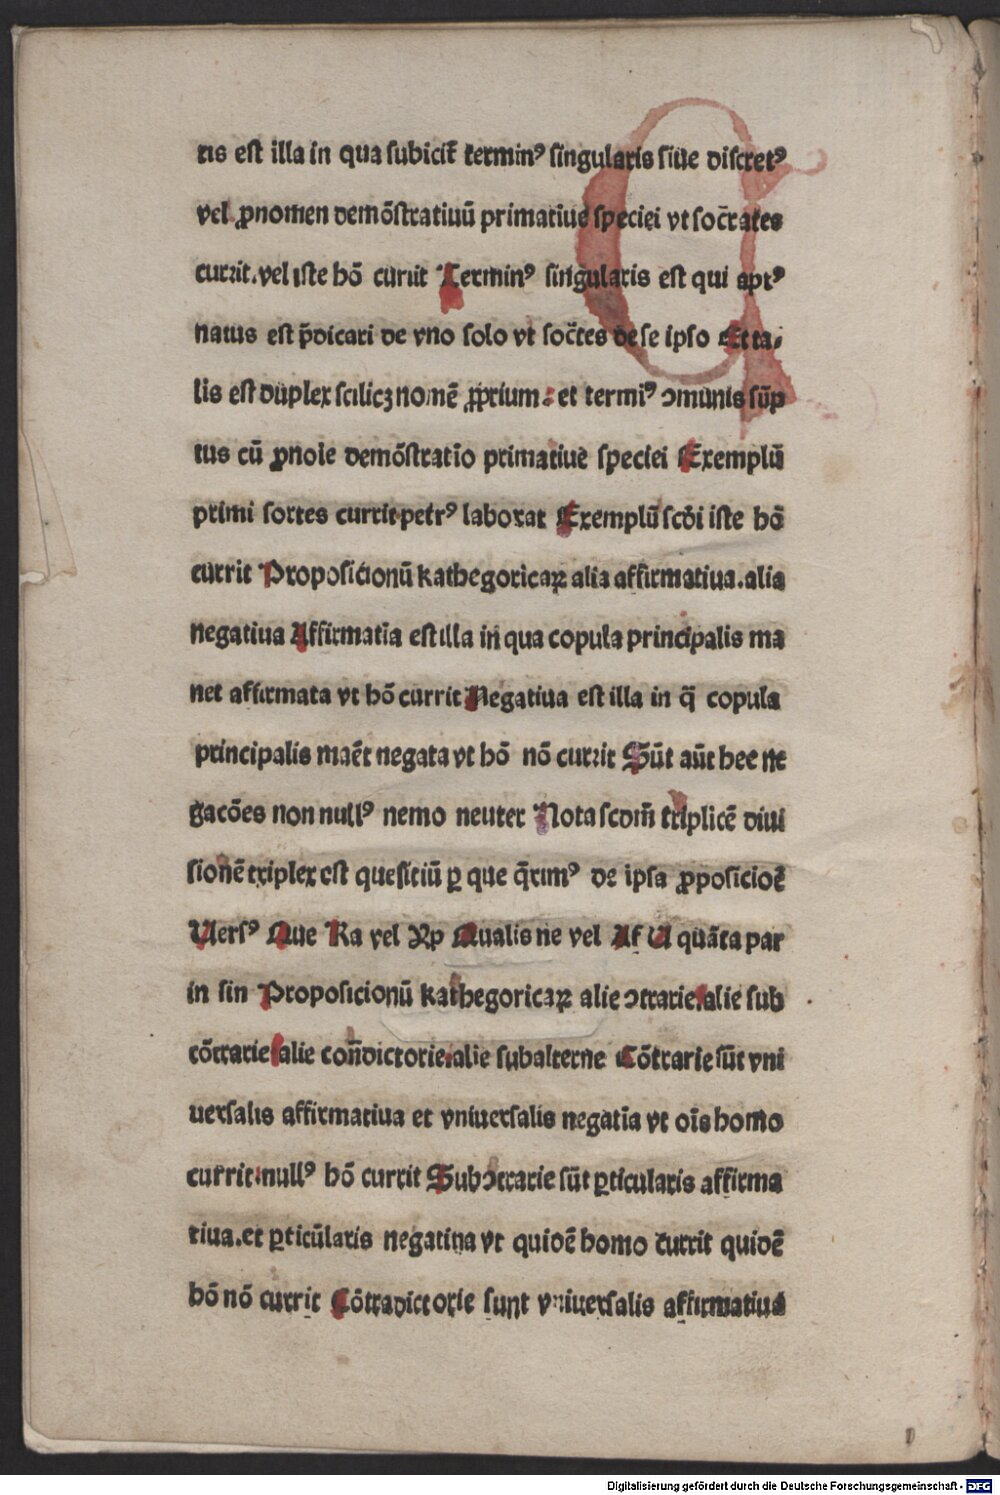 ris est illa in qua subicit̄ terminꝰ singularis siue discretꝰ
vel ꝓnomen demōstratiuū primatiue speciei vt soc̄rates
currit. vel iste hō currit Terminꝰ singularis est qui aptꝰ
natus est p̄dicari de vno solo vt soc̄tes de se ipso Et ta⸗
lis est duplex scilicꝫ nomē ꝓprium: et termiꝰ ↄmunis sūp
tus cū ꝓnoīe demōstratīo primatiue speciei Exemplū
primi sortes currit petrꝰ laborat Exemplū scd̄i iste hō
currit Proposicionū kathegoricaꝝ alia affirmatiua. alia
negatiua Affirmatīa est illa in qua copula principalis ma
net affirmata vt hō currit Negatiua est illa in q̄ copula
principalis maēt negata vt hō nō currit Sūt aūt hee ne
gacōes non nullꝰ nemo neuter Nota scdm̄ triplicē diui
sionē triplex est quesitiū ꝑ que q̄rimꝰ de ipsa ꝓposicioē
Uersꝰ Que Ka vel Yp Qualis ne vel Af U quāta par
in sin Proposicionū kathegoricaꝝ alie ↄtrarie alie sub
cōtrarie alie con̄dictorie alie subalterne Cōtrarie sūt vni
uersalis affirmatiua et vniuersalis negatīa vt oīs homo
currit: nullꝰ hō currit Subↄtrarie sūt ꝑticularis affirma
tiua. et ꝑticularis negatiua vt quidē homo currit quidē
hō nō currit Cōtradictorie sunt vniuersalis affirmatiua
Digitalisierung gefördert durch die Deutsche Forschungsgemeinschaft - DFG